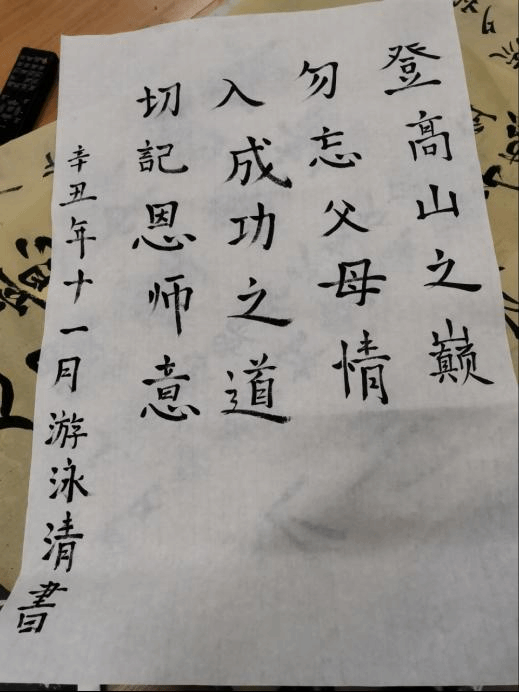 登高山之巅
勿忘父母情
入成功之道
切記恩师意
辛丑年十一月游泳清書